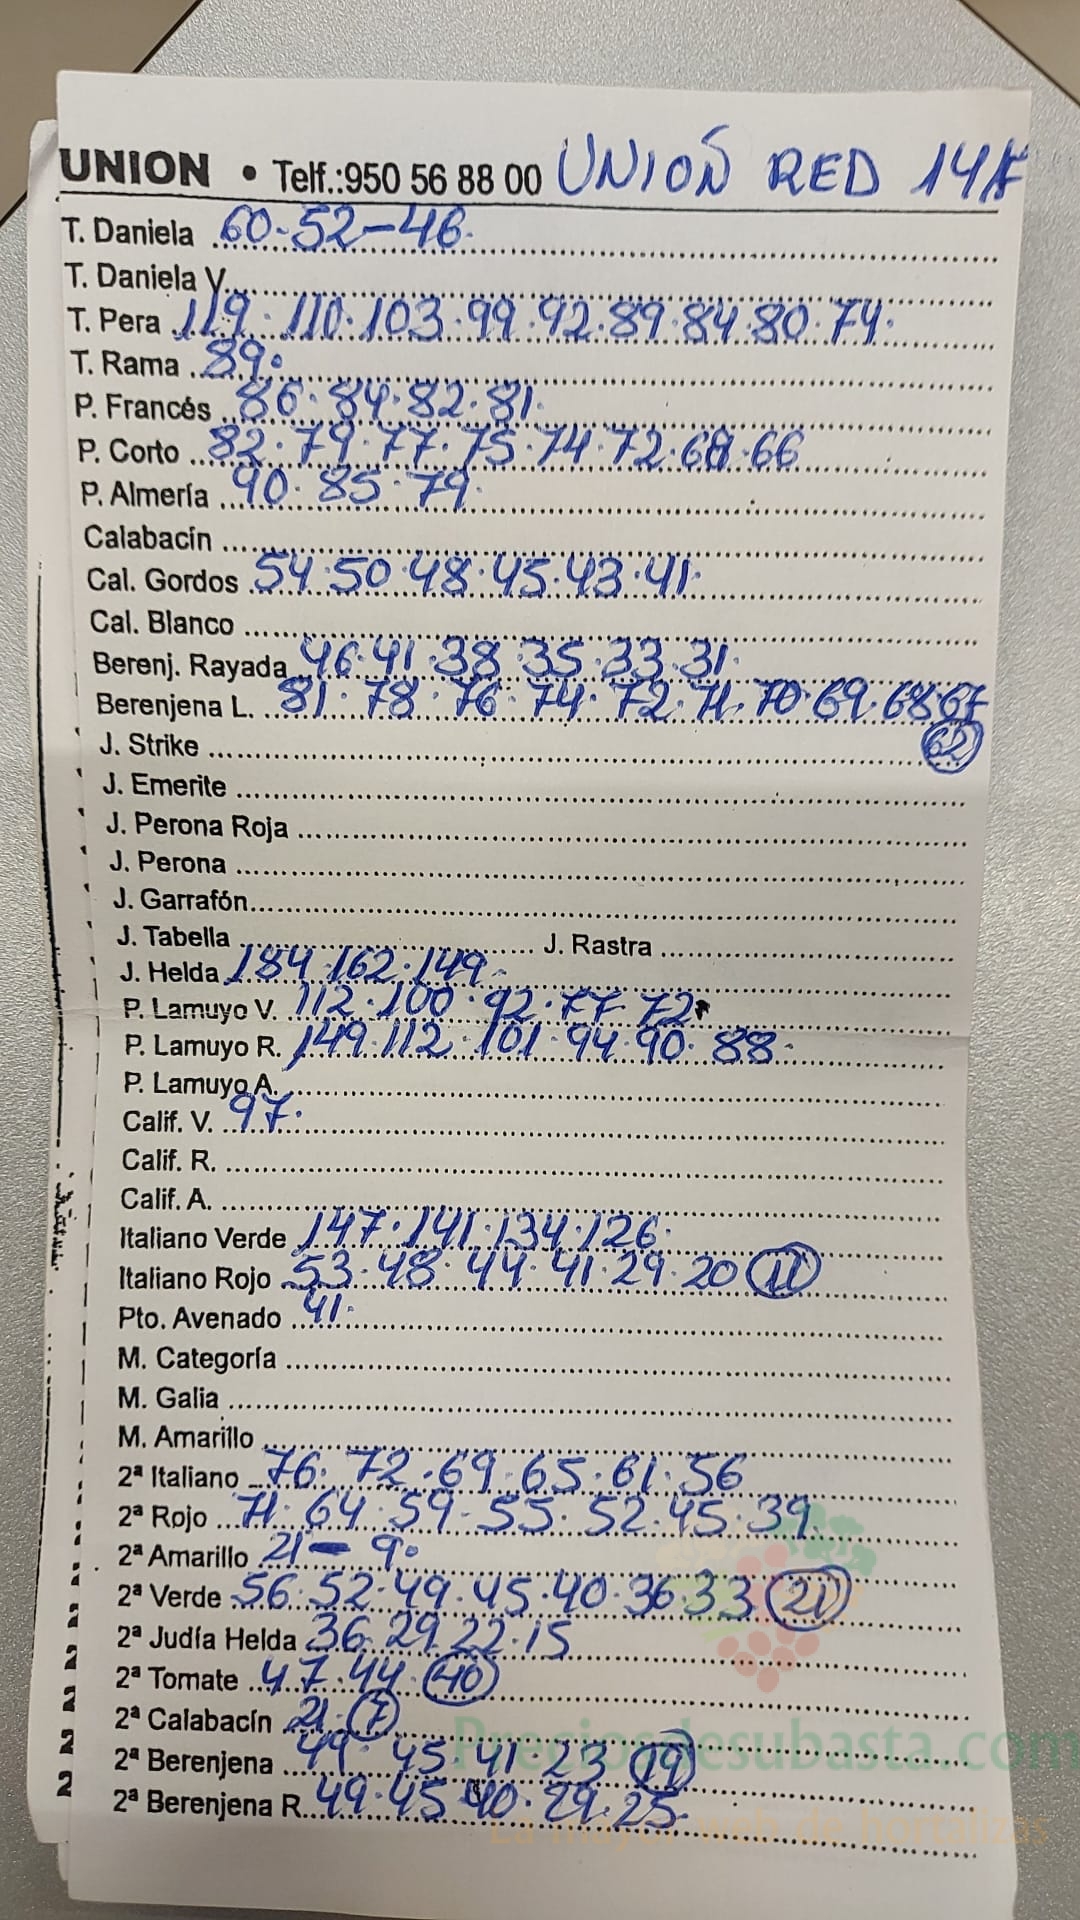 UNION • Telf.:950 56 88 00 UNION RED 14
T. Daniela 60-52-46.
T. Daniela V.
T. Pera 119.110.103.99.92.89.84.80.74.
T. Rama 89.
P. Francés 86.84.82.81.
P. Corto 82.79.77.75.74.72.68.66
P. Almería 90.85.79.
Calabacín
Cal. Gordos 54.50.48.45.43.41.
Cal. Blanco
Berenj. Rayada 46.41.38.35.33.31.
Berenjena L. 81.78.76.74.72.71.70.69.68.67
J. Strike 62
J. Emerite
J. Perona Roja
J. Perona
J. Garrafón
J. Tabella J. Rastra
J. Helda 184.162.149.
P. Lamuyo V. 112.100.92.77.72.
P. Lamuyo R. 149.112.101.94.90.88.
P. Lamuyo A.
Calif. V. 97.
Calif. R.
Calif. A.
Italiano Verde 147.141.134.126.
Italiano Rojo 53.48.44.41.29.20 11
Pto. Avenado 41.
M. Categoría
M. Galia
M. Amarillo
2ª Italiano 76.72.69.65.61.56
2ª Rojo 71.64.59-55.52.45.39.
2ª Amarillo 21-9.
2ª Verde 56.52.49.45.40.36.33 21
2ª Judía Helda 36.29.22.15
2ª Tomate 47.44. 40
2ª Calabacín 21. 7
2ª Berenjena 49.45.41.23 19
2ª Berenjena R. 49.45.40.29.25.
Preciosdesubasta.com
La mayor web de hortalizas